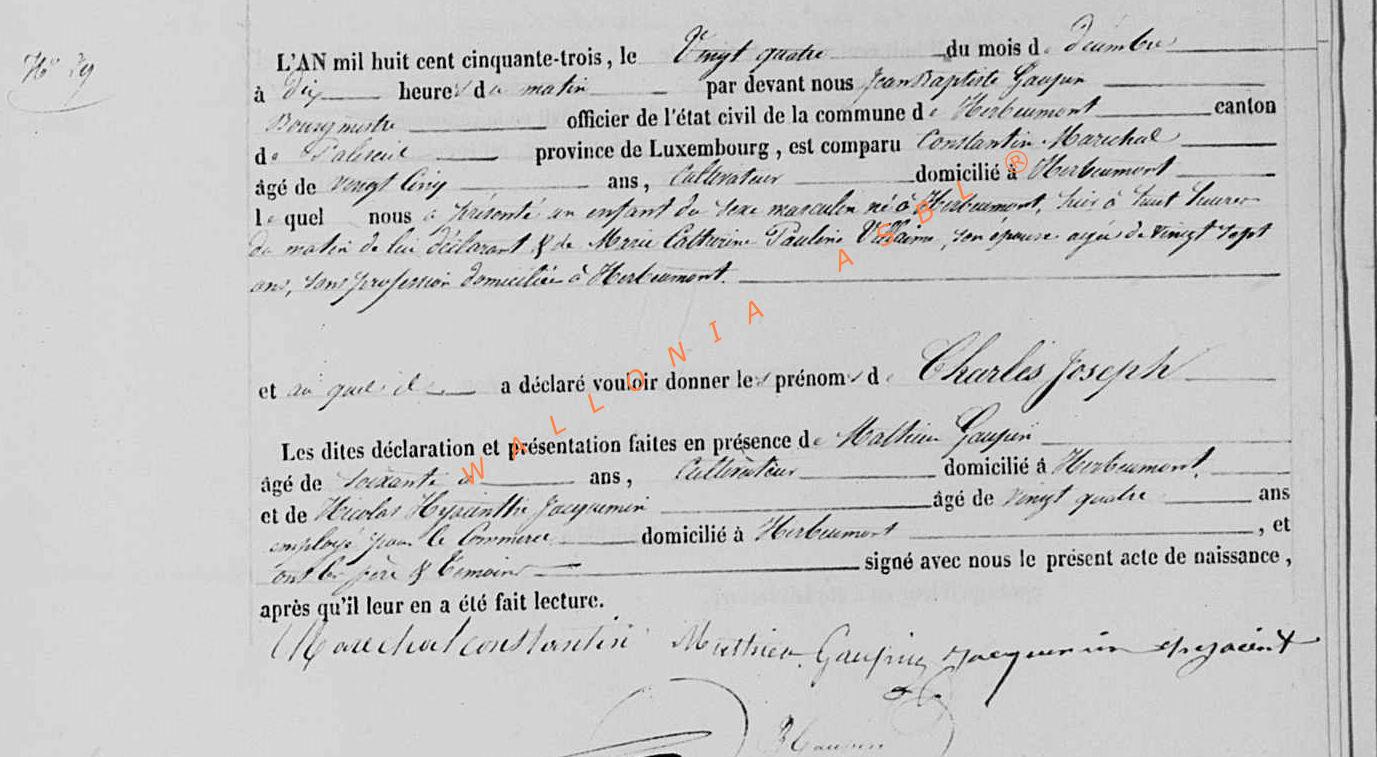 N° 39
L'AN mil huit cent cinquante-trois, le Vingt quatre du mois de décembre
à dix heures du matin par devant nous Jean Baptiste Gaupin
Bourgmestre officier de l'état civil de la commune de Herbeumont canton
de Paliseul province de Luxembourg, est comparu Constantin Marechal
âgé de vingt cinq ans, Cultivateur domicilié à Herbeumont
lequel nous a présenté un enfant du sexe masculin né à Herbeumont, hier à huit heures
du matin de lui déclarant & de Marie Catherine Pauline Villaime, son épouse agée de vingt sept
ans, sans profession domiciliée à Herbeumont.
et au quel il a déclaré vouloir donner les prénoms de Charles Joseph
Les dites déclaration et présentation faites en présence de Mathieu Gaupin
âgé de soixante ans, Cultivateur domicilié à Herbeumont,
et de Nicolas Hyacinthe Jacquemin âgé de vingt quatre ans
employé pour le Commerce domicilié à Herbeumont, et
ont les père & témoins signé avec nous le présent acte de naissance,
après qu'il leur en a été fait lecture.
Marechal constantin Mathieu Gaupin Jacquemin
WALLONIA ASBL ®